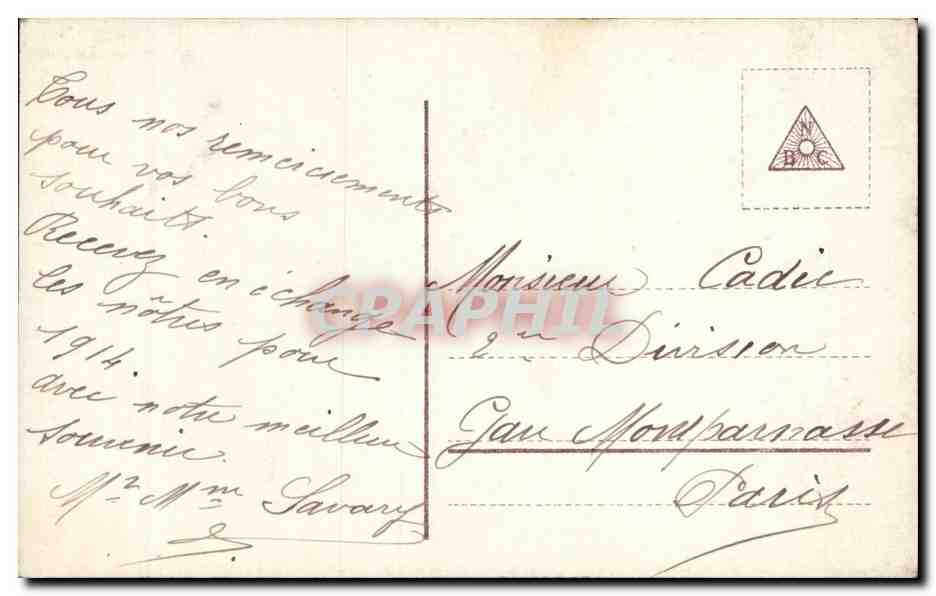 Tous nos remerciements
pour vos bons
souhaits.
Recevez en échange
les nôtres pour
1914.
avec notre meilleur
souvenir.
Mr Mme Savary
N
B C
Monsieur Cadic
2me Division
Gare Montparnasse
Paris
CPAPHIL